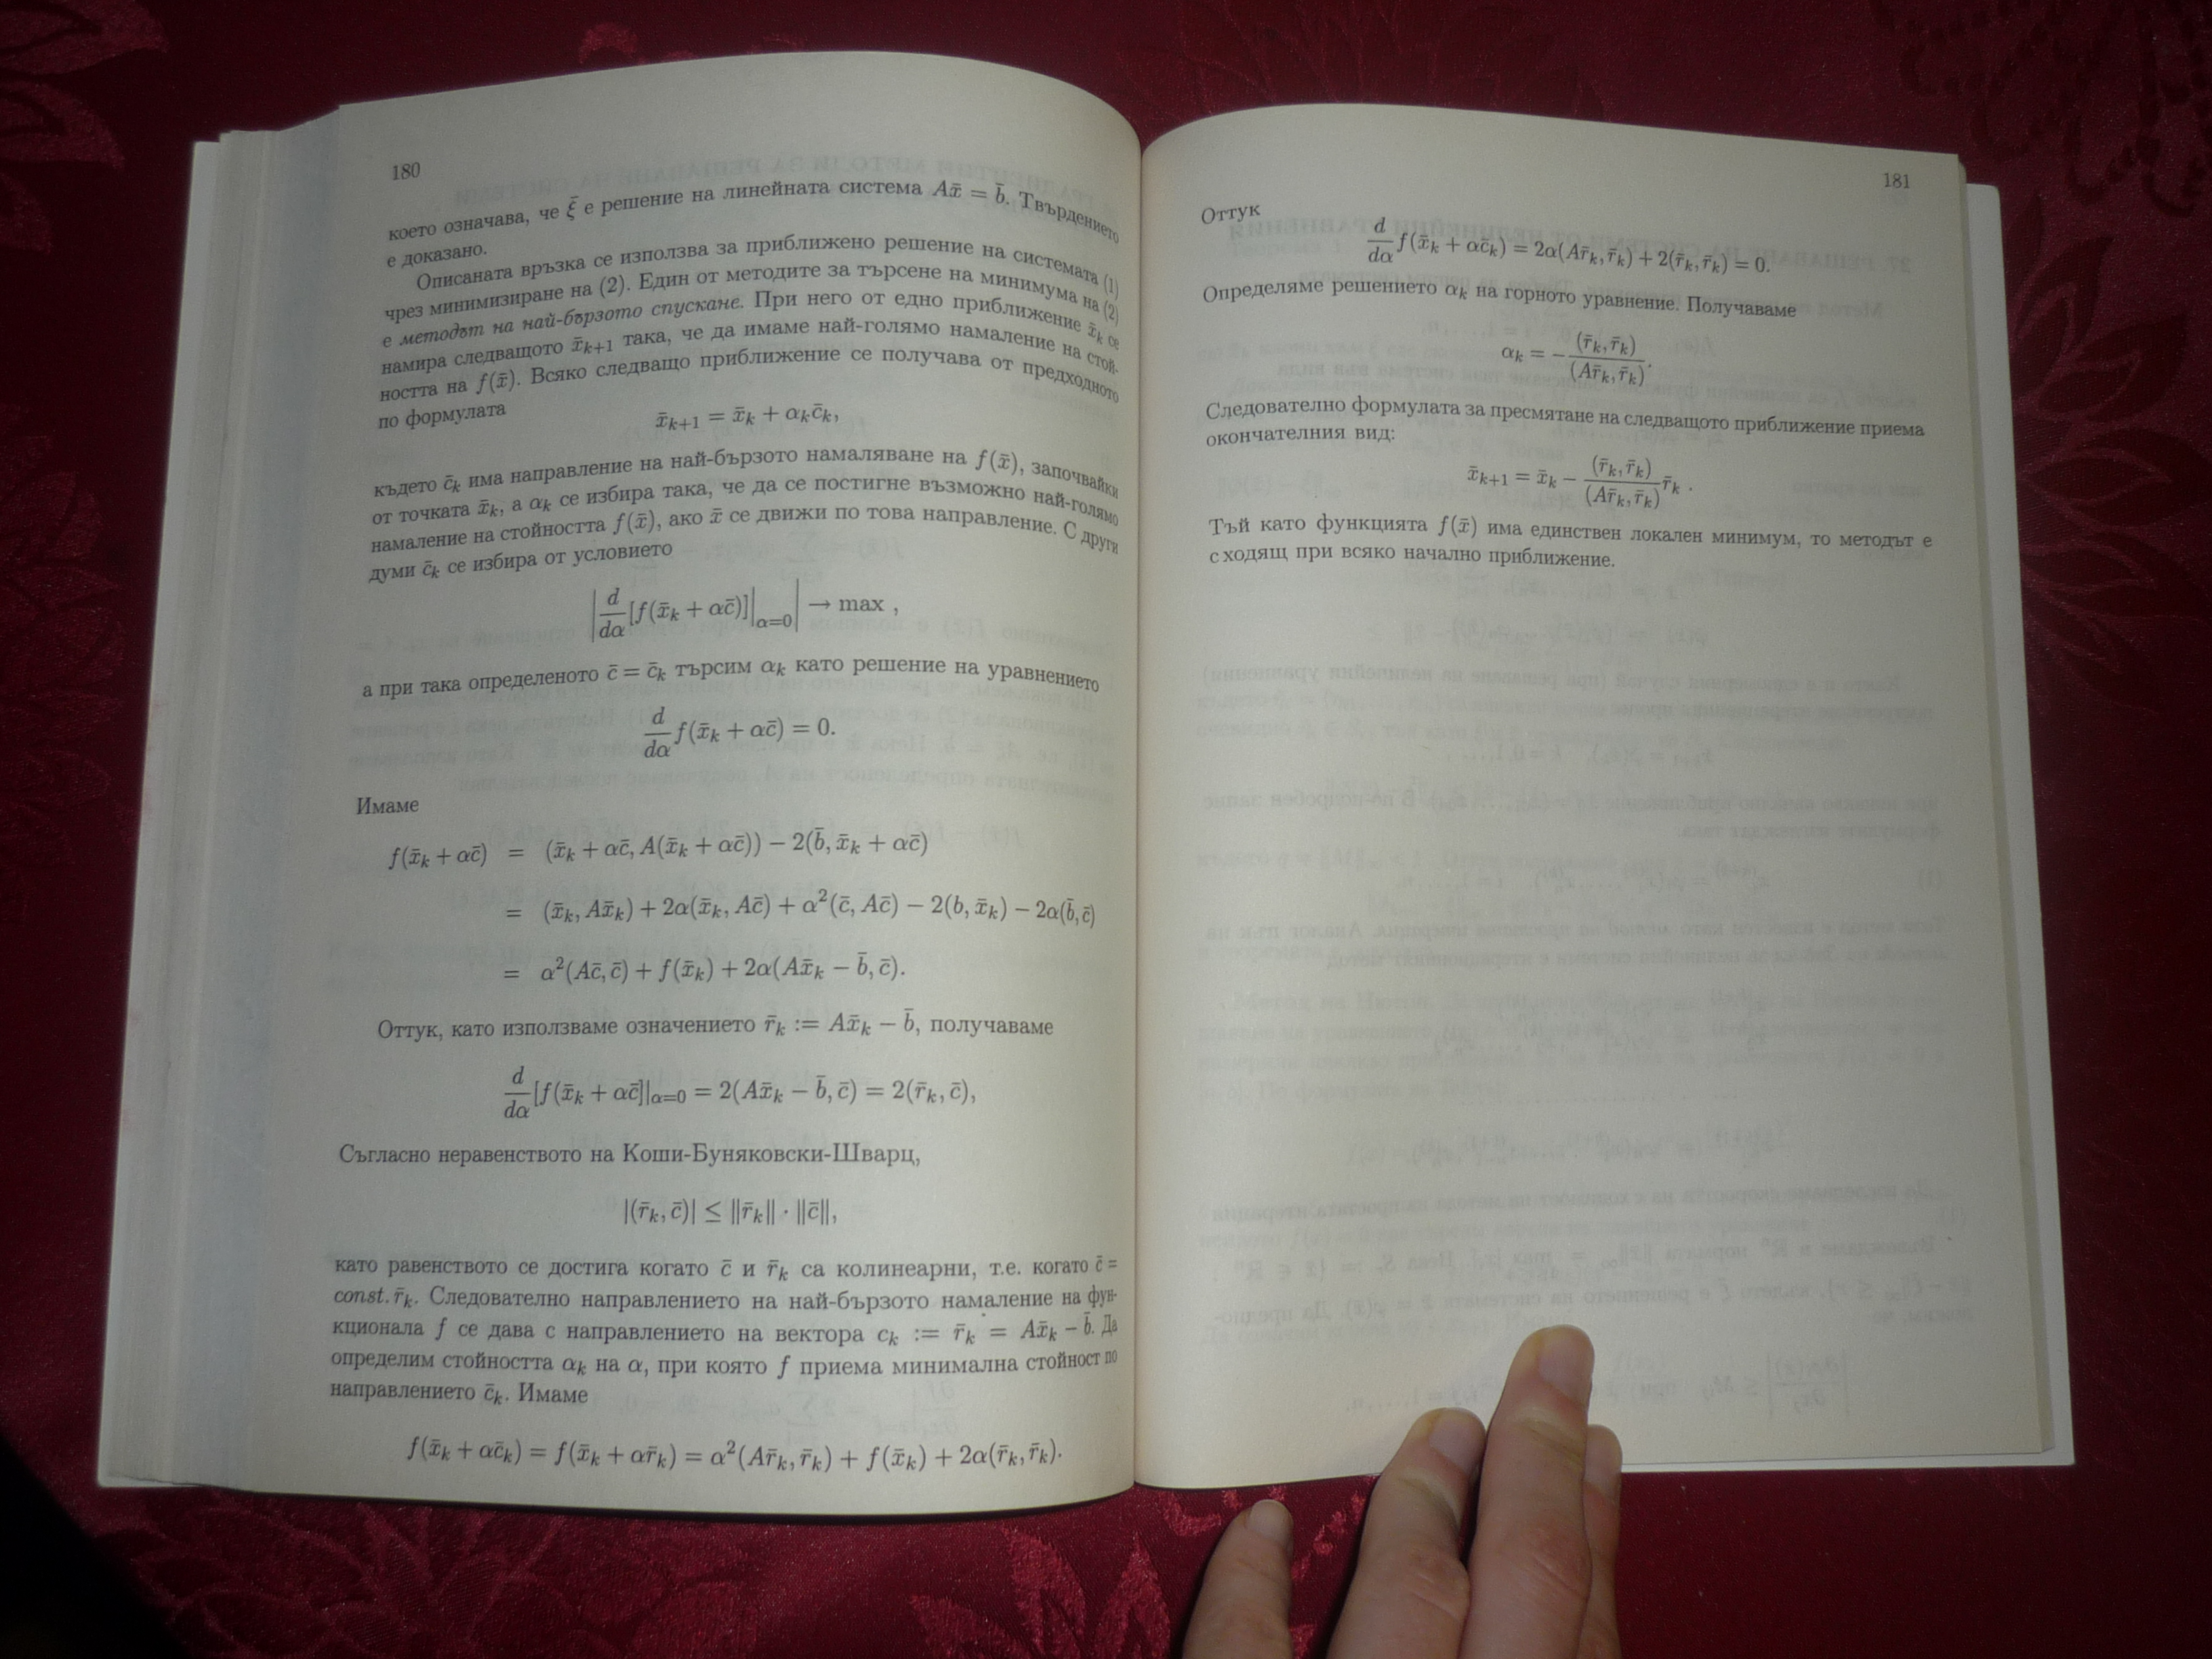 180
което означава, че ξ̄ е решение на линейната система Ax̄ = b̄. Твърдението
е доказано.
Описаната връзка се използва за приближено решение на системата (1)
чрез минимизиране на (2). Един от методите за търсене на минимума на (2)
е методът на най-бързото спускане. При него от едно приближение x̄ₖ се
намира следващото x̄ₖ₊₁ така, че да имаме най-голямо намаление на стой-
ността на f(x̄). Всяко следващо приближение се получава от предходното
по формулата
x̄ₖ₊₁ = x̄ₖ + αₖc̄ₖ,
където c̄ₖ има направление на най-бързото намаляване на f(x̄), започвайки
от точката x̄ₖ, а αₖ се избира така, че да се постигне възможно най-голямо
намаление на стойността f(x̄), ако x̄ се движи по това направление. С други
думи c̄ₖ се избира от условието
|d/dα [f(x̄ₖ + αc̄)]|α=0| → max ,
а при така определеното c̄ = c̄ₖ търсим αₖ като решение на уравнението
d/dα f(x̄ₖ + αc̄) = 0.
Имаме
f(x̄ₖ + αc̄) = (x̄ₖ + αc̄, A(x̄ₖ + αc̄)) − 2(b̄, x̄ₖ + αc̄)
= (x̄ₖ, Ax̄ₖ) + 2α(x̄ₖ, Ac̄) + α²(c̄, Ac̄) − 2(b, x̄ₖ) − 2α(b̄, c̄)
= α²(Ac̄, c̄) + f(x̄ₖ) + 2α(Ax̄ₖ − b̄, c̄).
Оттук, като използваме означението r̄ₖ := Ax̄ₖ − b̄, получаваме
d/dα [f(x̄ₖ + αc̄]|α=0 = 2(Ax̄ₖ − b̄, c̄) = 2(r̄ₖ, c̄),
Съгласно неравенството на Коши-Буняковски-Шварц,
|(r̄ₖ, c̄)| ≤ ||r̄ₖ|| · ||c̄||,
като равенството се достига когато c̄ и r̄ₖ са колинеарни, т.е. когато c̄ =
const. r̄ₖ. Следователно направлението на най-бързото намаление на фун-
кционала f се дава с направлението на вектора cₖ := r̄ₖ = Ax̄ₖ − b̄. Да
определим стойността αₖ на α, при която f приема минимална стойност по
направлението c̄ₖ. Имаме
f(x̄ₖ + αc̄ₖ) = f(x̄ₖ + αr̄ₖ) = α²(Ar̄ₖ, r̄ₖ) + f(x̄ₖ) + 2α(r̄ₖ, r̄ₖ).
181
Оттук
d/dα f(x̄ₖ + αc̄ₖ) = 2α(Ar̄ₖ, r̄ₖ) + 2(r̄ₖ, r̄ₖ) = 0.
Определяме решението αₖ на горното уравнение. Получаваме
αₖ = − (r̄ₖ, r̄ₖ)/(Ar̄ₖ, r̄ₖ).
Следователно формулата за пресмятане на следващото приближение приема
окончателния вид:
x̄ₖ₊₁ = x̄ₖ − (r̄ₖ, r̄ₖ)/(Ar̄ₖ, r̄ₖ) r̄ₖ .
Тъй като функцията f(x̄) има единствен локален минимум, то методът е
сходящ при всяко начално приближение.